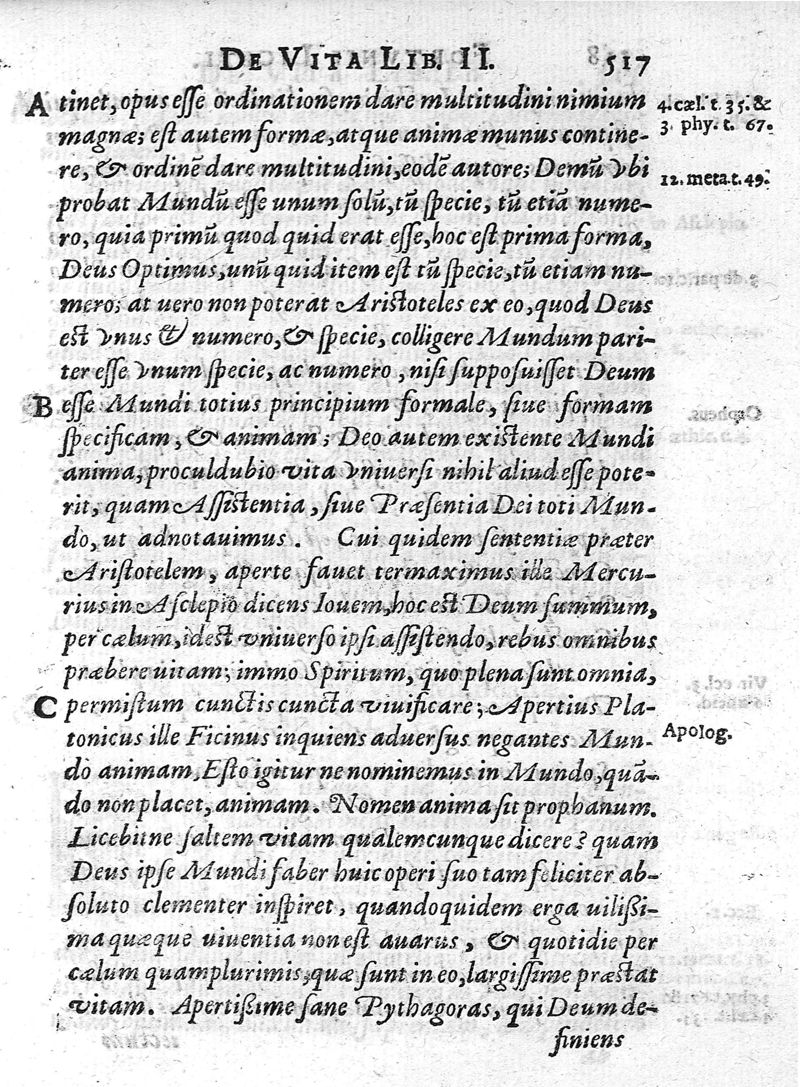 DE VITA LIB. II. 517
A tinet, opus esse ordinationem dare multitudini nimium 4. cæl. t. 35. &
magnæ; est autem formæ, atque animæ munus contine- 3. phy. t. 67.
re, & ordinẽ dare multitudini, eodẽ autore; Demũ vbi
probat Mundũ esse unum solũ, tũ specie, tũ etiã nume- 12. meta. t. 49.
ro, quia primũ quod quid erat esse, hoc est prima forma,
Deus Optimus, unũ quid item est tũ specie, tũ etiam nu-
mero; at uero non poterat Aristoteles ex eo, quod Deus
est vnus & numero, & specie, colligere Mundum pari-
ter esse vnum specie, ac numero, nisi supposuisset Deum
B esse Mundi totius principium formale, siue formam
specificam, & animam; Deo autem existente Mundi
anima, proculdubio vita vniuersi nihil aliud esse pote-
rit, quam Assistentia, siue Præsentia Dei toti Mun-
do, ut adnotauimus. Cui quidem sententiæ præter
Aristotelem, aperte fauet termaximus ille Mercu-
rius in Asclepio dicens Iouem, hoc est Deum summum,
per cælum, idest vniuerso ipsi assistendo, rebus omnibus
præbere uitam; immo Spiritum, quo plena sunt omnia,
C permistum cunctis cuncta viuificare; Apertius Pla-
tonicus ille Ficinus inquiens aduersus negantes Mun- Apolog.
do animam, Esto igitur ne nominemus in Mundo, quã-
do non placet, animam. Nomen anima sit prophanum.
Licebitne saltem vitam qualemcunque dicere? quam
Deus ipse Mundi faber huic operi suo tam feliciter ab-
soluto clementer inspiret, quandoquidem erga uilißi-
ma quæque uiuentia non est auarus, & quotidie per
cælum quamplurimis, quæ sunt in eo, largissime præstat
vitam. Apertißime sane Pythagoras, qui Deum de-
finiens